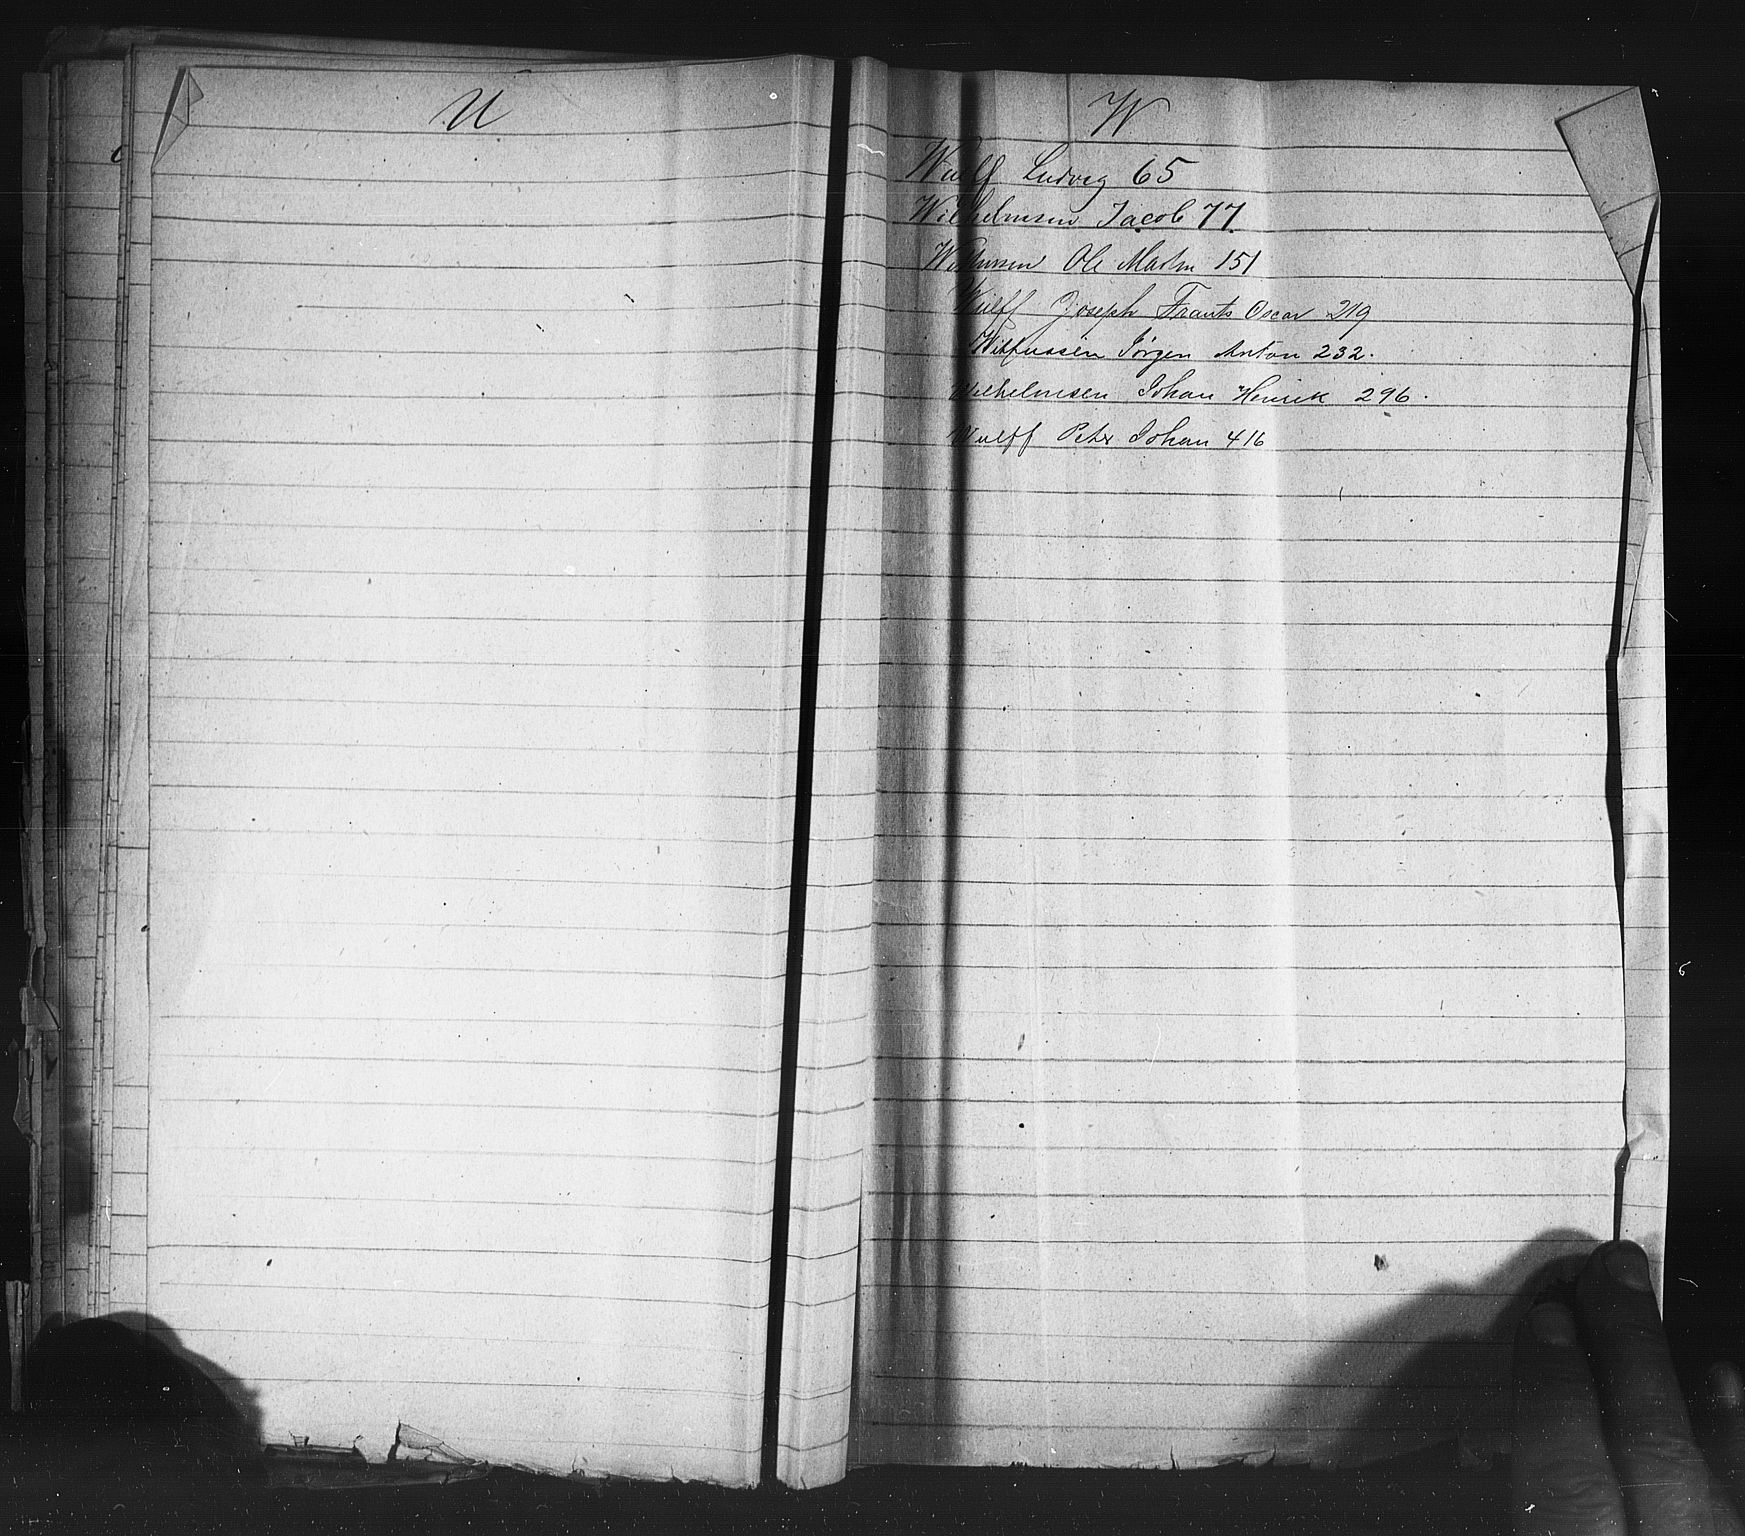 U
W
Wulff Ludvig 65
Wilhelmsen Jacob 77.
Ole Martin 151
Wulff Joseph Frants Oscar 219
Witfussen Jörgen Anton 232.
Wilhelmsen Johan Henrik 296.
Wulff Peter Johan 416